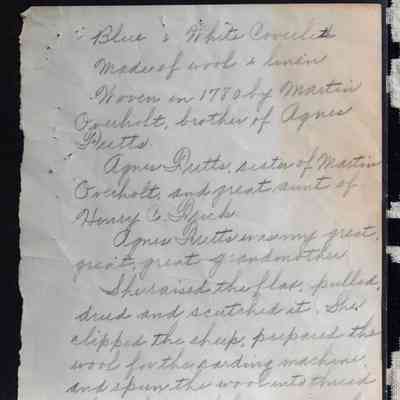 Blue & White Coverlet
Made of wool & linen
Woven in 1780 by Martin
Overholt, brother of Agnes
Fretts.
Agnes Fretts, sister of Martin
Overholt, and great aunt of
Henry C. Frick.
Agnes Fretts was my great,
great, great grandmother.
She raised the flax, pulled,
dried and scutched it. She
clipped the sheep, prepared the
wool for the carding machine,
and spun the wool into thread